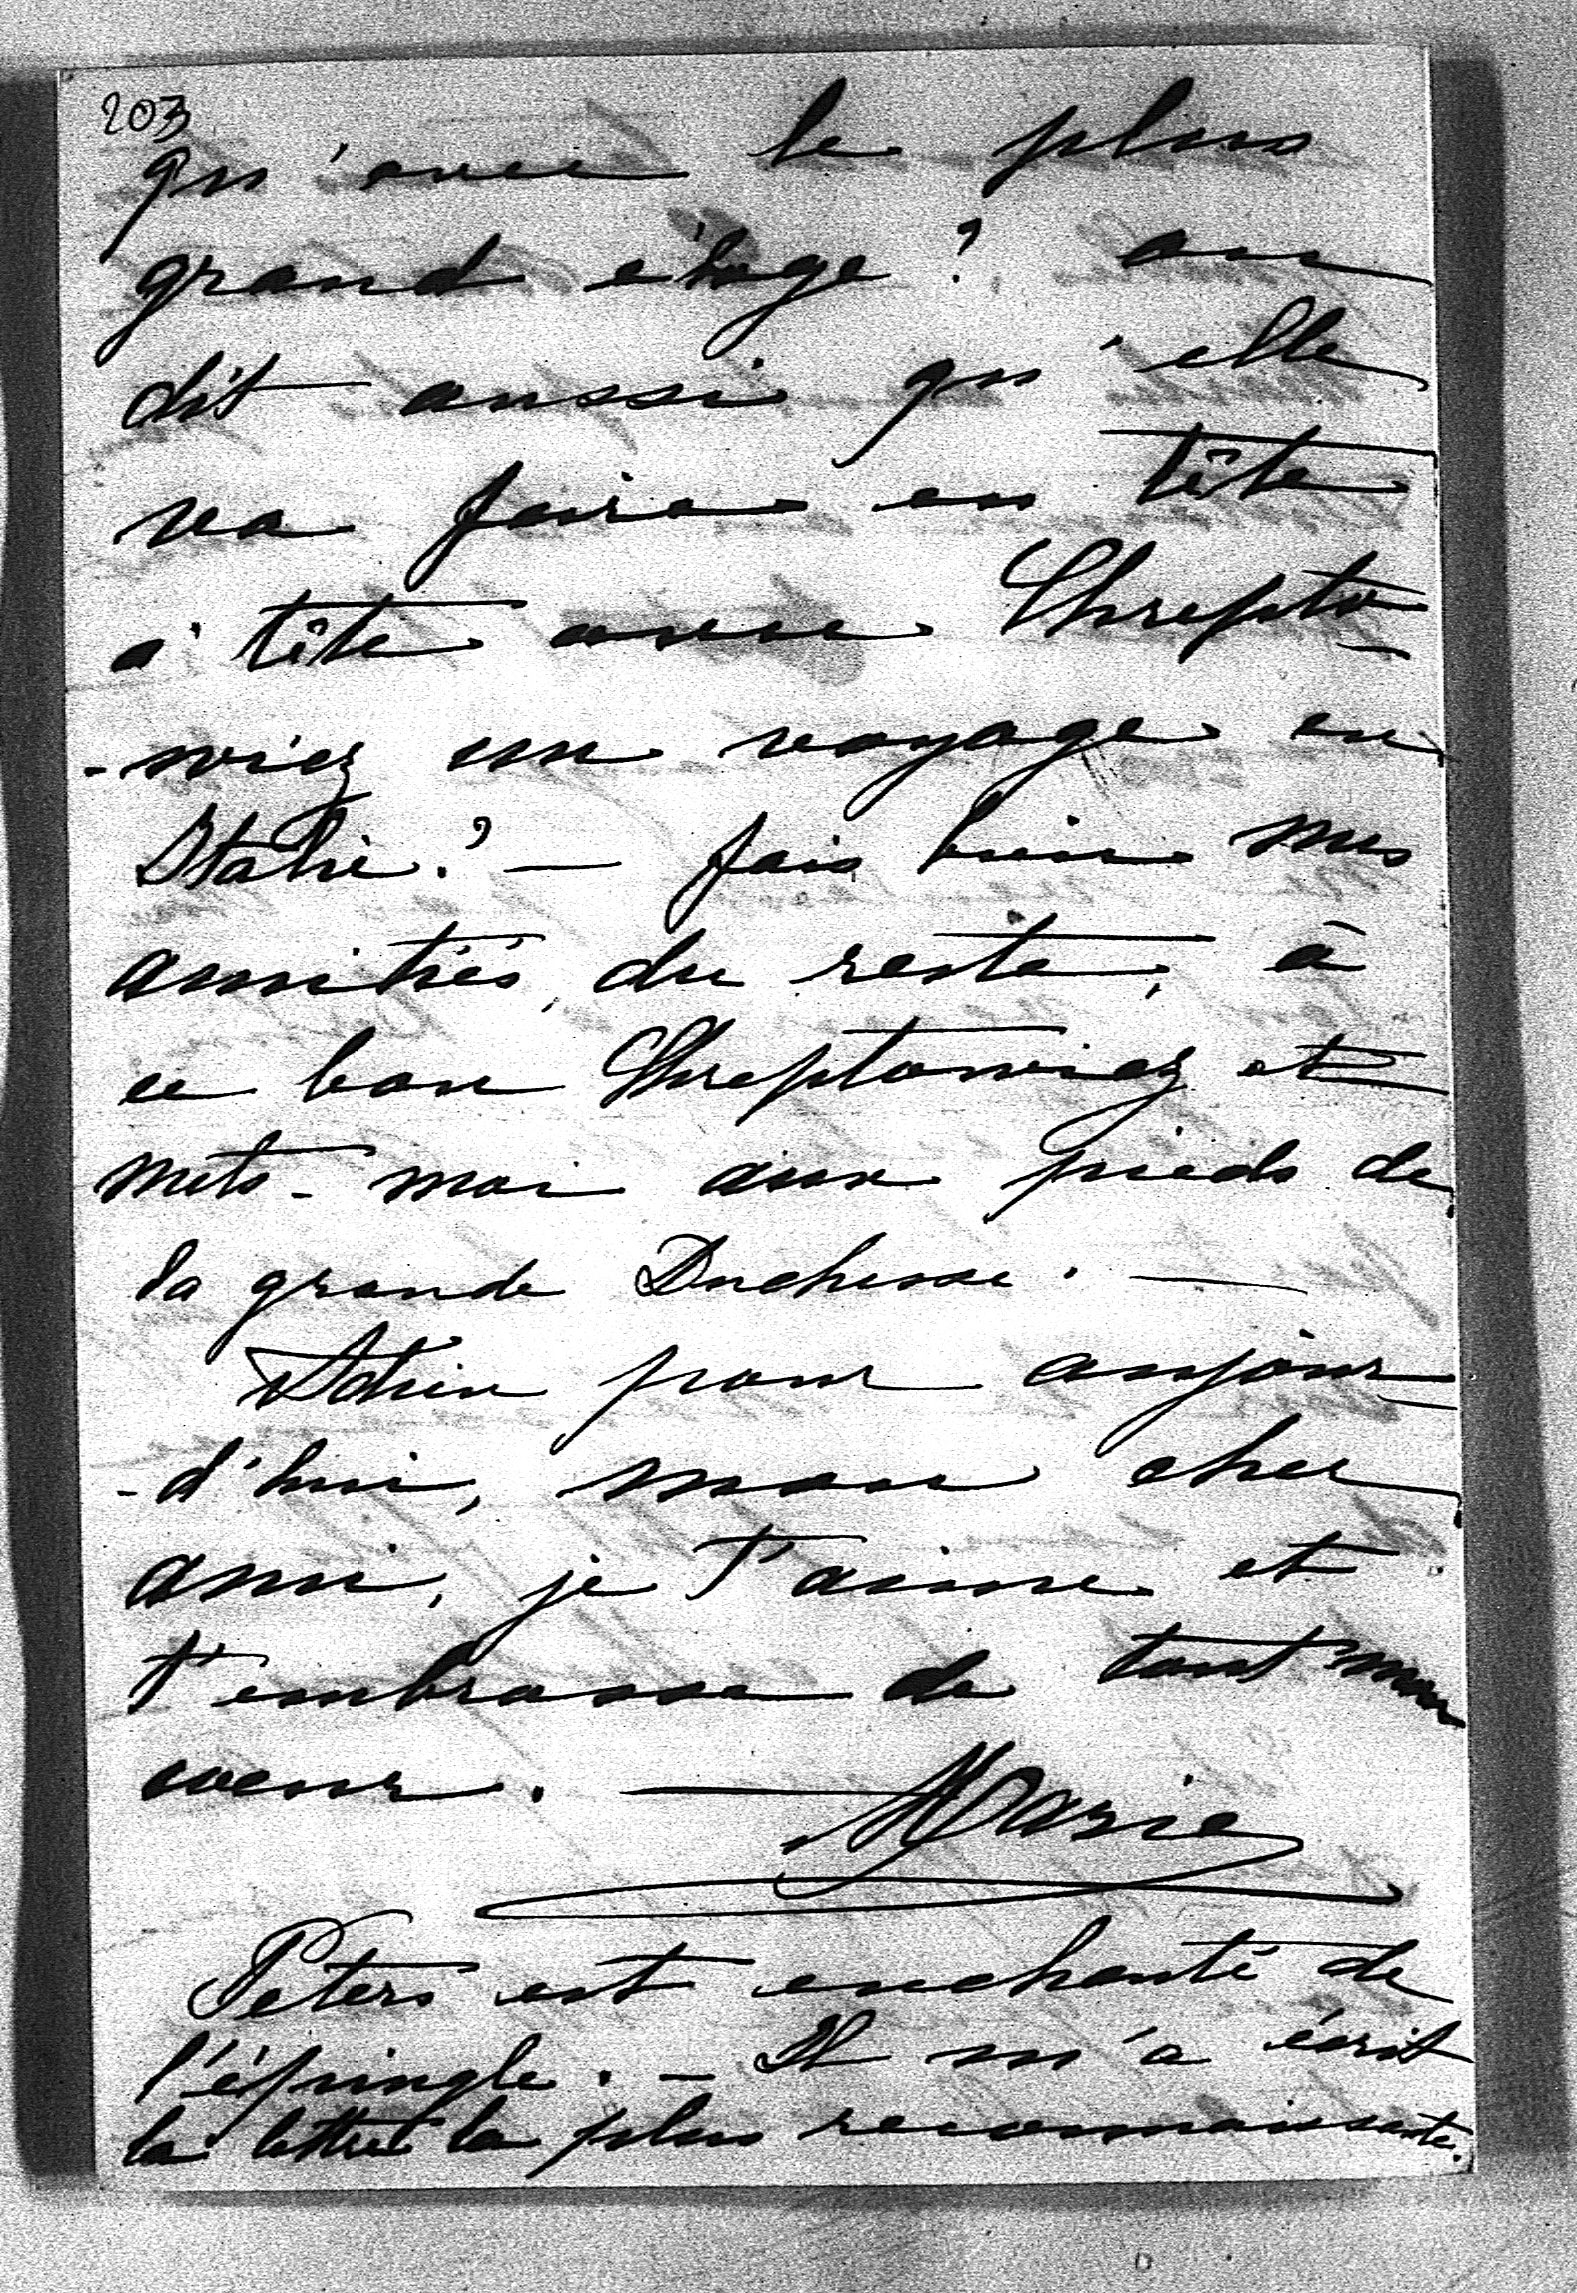 203
qu'avec le plus
grand éloge? on
dit aussi qu'elle
va faire en tête
à tête avec Shrepto-
-wiez un voyage en
Italie? — fais bien mes
amitiés, du reste, à
ce bon Shreptowiez et
mets-moi aux pieds de
la grande Duchesse. —
Adieu pour aujour-
-d'hui, mon cher
ami, je t'aime et
t'embrasse de tout mon
coeur. — Marie
Péters est enchanté de
l'épingle. — Il m'a écrit
la lettre la plus reconnaissante.